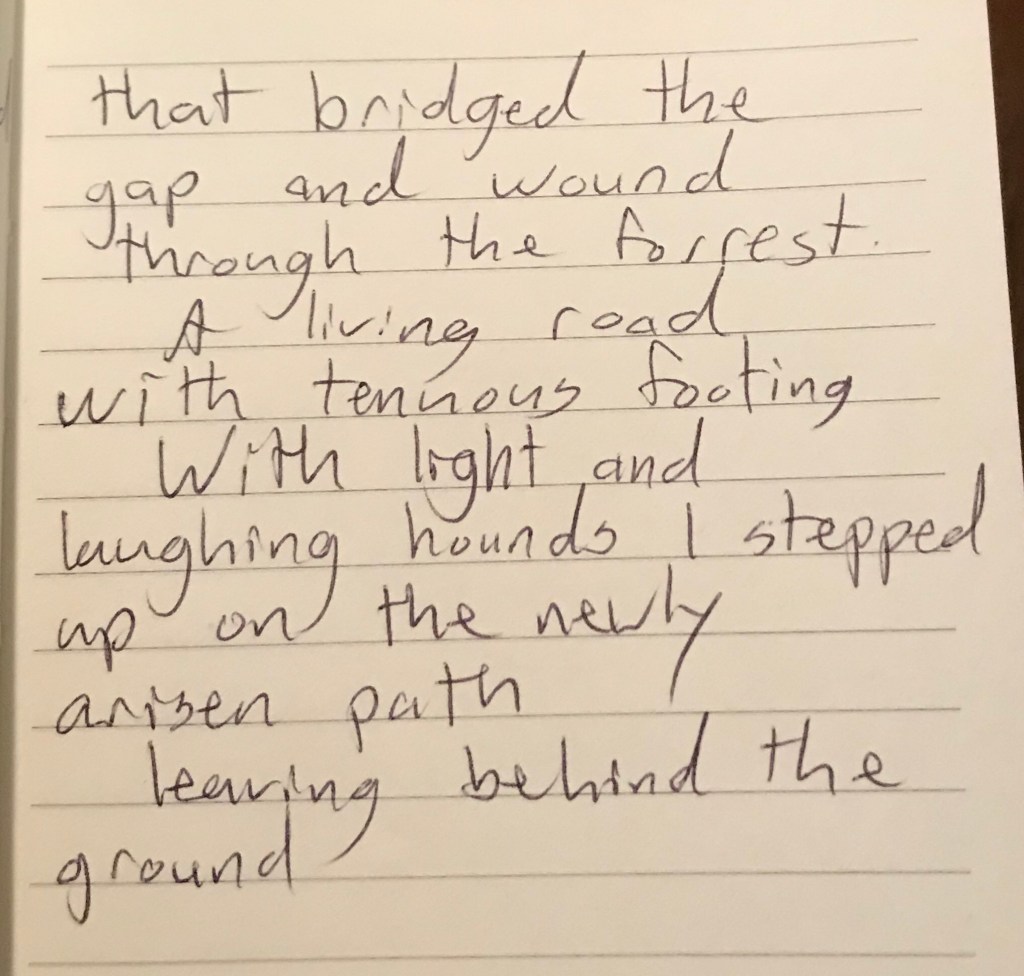 that bridged the
gap and wound
through the forrest.
A living road
with tenuous footing
With light and
laughing hounds I stepped
up on the newly
arisen path
leaving behind the
ground